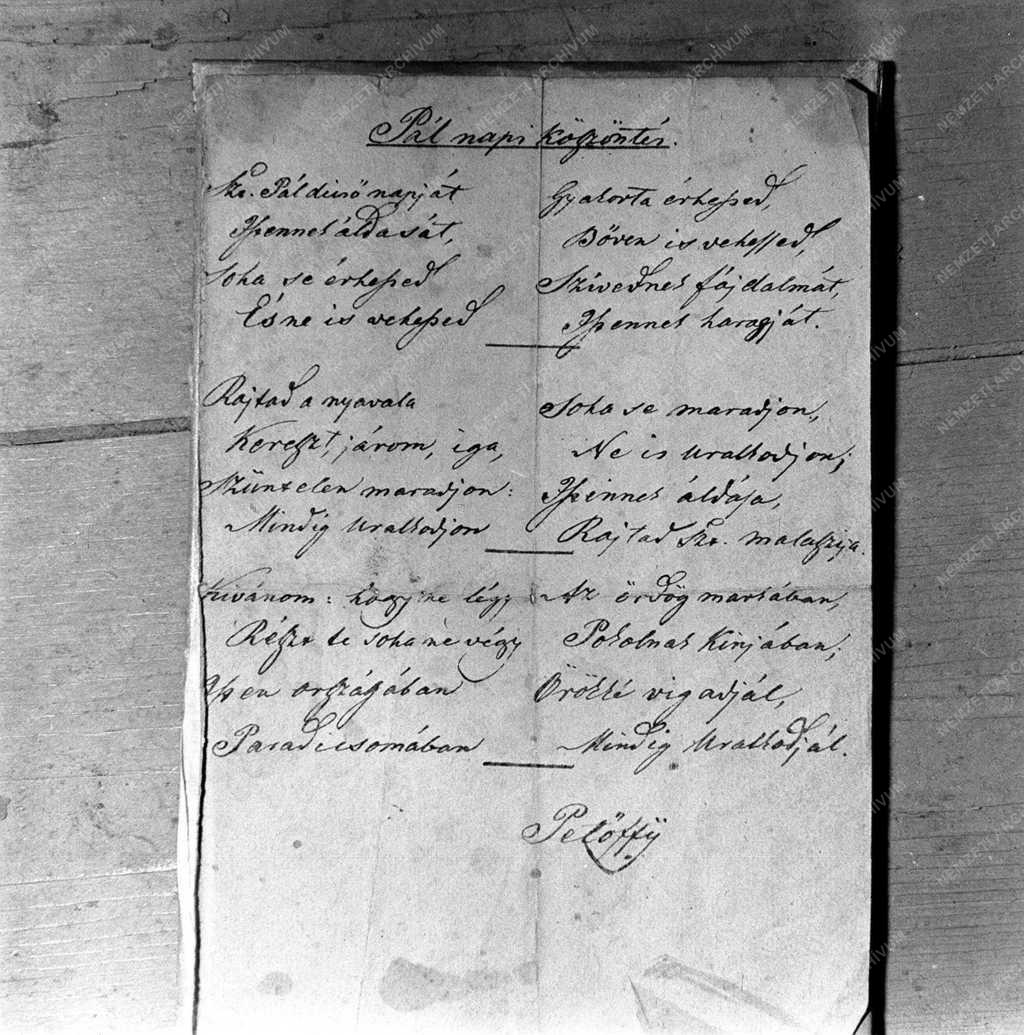 Pál napi köszöntés.
Szt. Pál dicső napját Gyakorta érhessed,
Istennek áldását, Bőven is vehessed,
Soha se érhessed Szívednek fájdalmát,
És ne is vehessed Istennek haragját.
Rajtad a nyavala Soha se maradjon,
Kereszt, járom, iga, Ne is uralkodjon;
Szüntelen maradjon: Istennek áldása,
Mindig uralkodjon Rajtad Szt. malasztja.
Kívánom: hogy ne légy Az ördög markában,
Részt te soha ne végy Pokolnak kinjában;
Isten országában Örökké vigadjál,
Paradicsomában Mindig uralkodjál.
Petőffÿ
NEMZETI ARCHIVUM